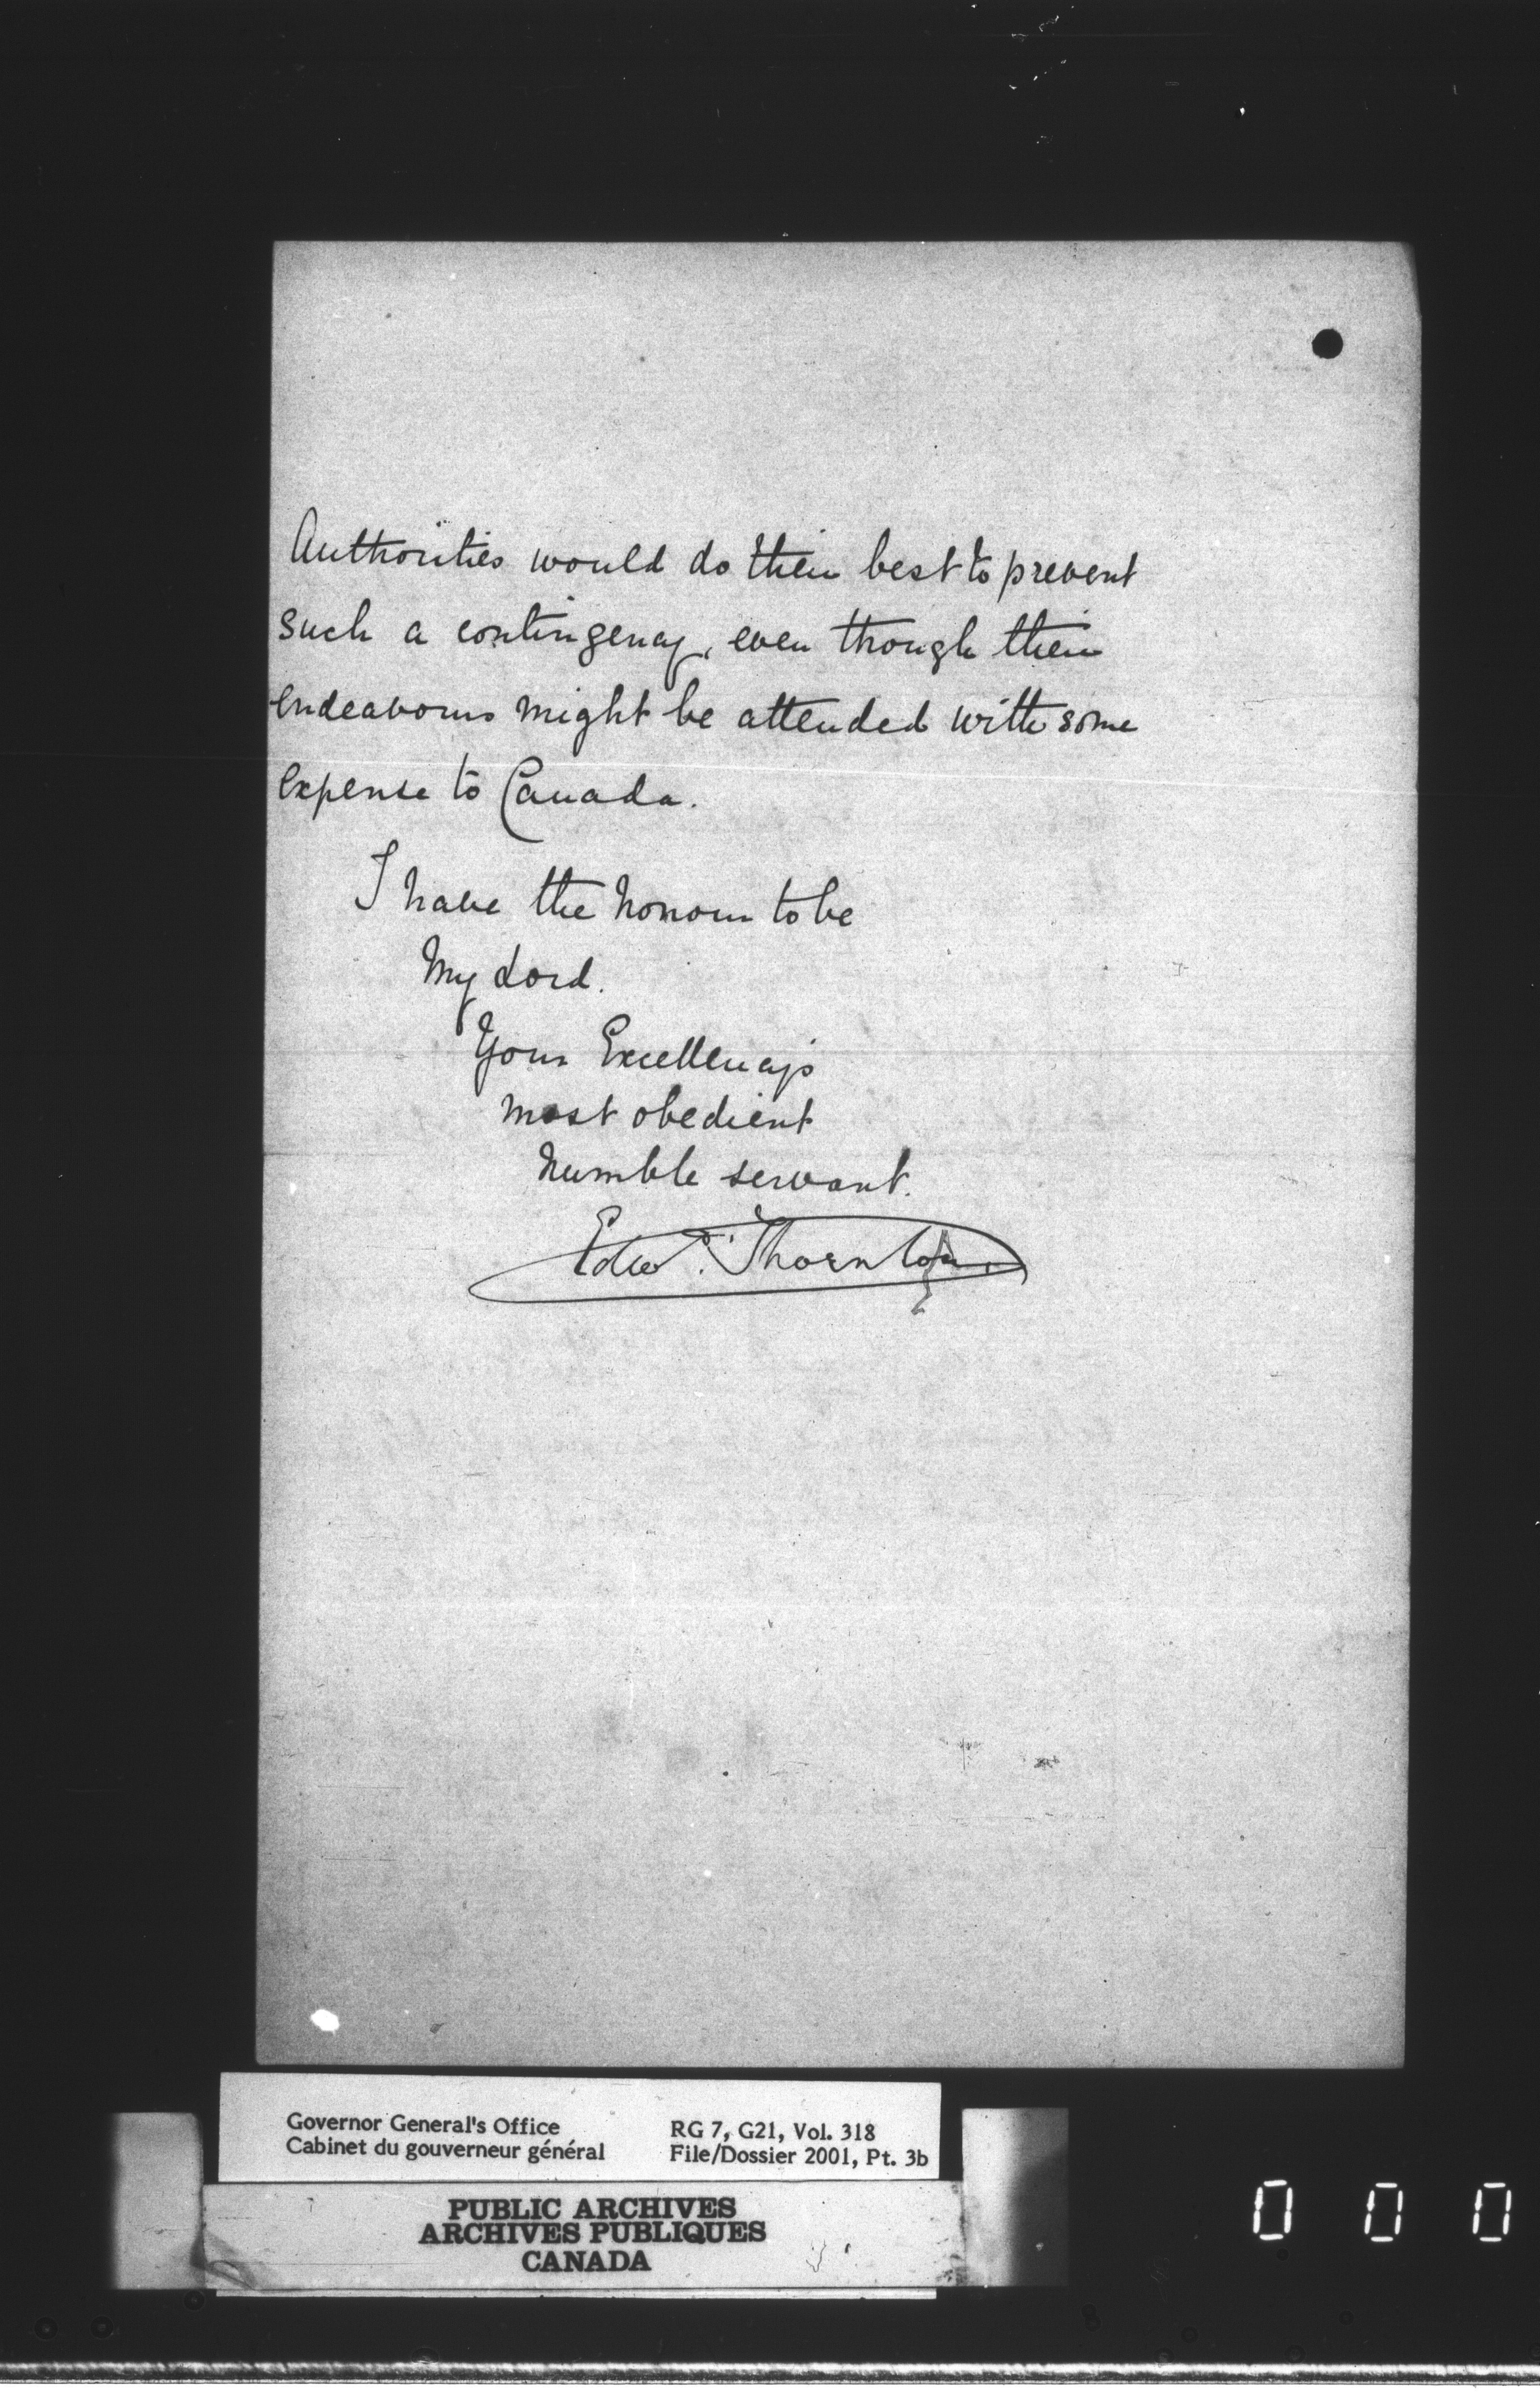 Authorities would do their best to prevent
such a contingency, even though their
endeavours might be attended with some
expense to Canada.
I have the honour to be
My Lord.
Your Excellency's
most obedient
humble servant.
Edwd. Thornton
Governor General's Office
Cabinet du gouverneur général
RG 7, G21, Vol. 318
File/Dossier 2001, Pt. 3b
PUBLIC ARCHIVES
ARCHIVES PUBLIQUES
CANADA
0 0 0